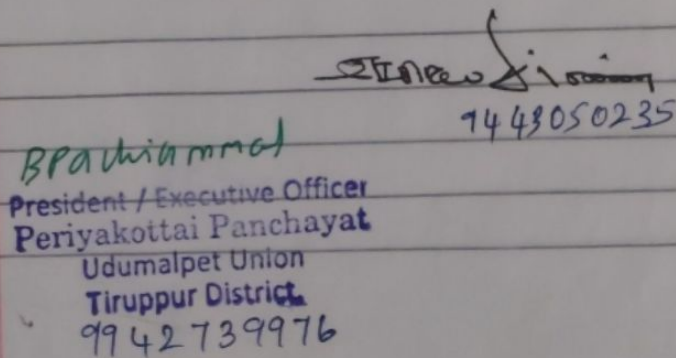 9443050235
BPachiammal
President / Executive Officer
Periyakottai Panchayat
Udumalpet Union
Tiruppur District.
9942739976